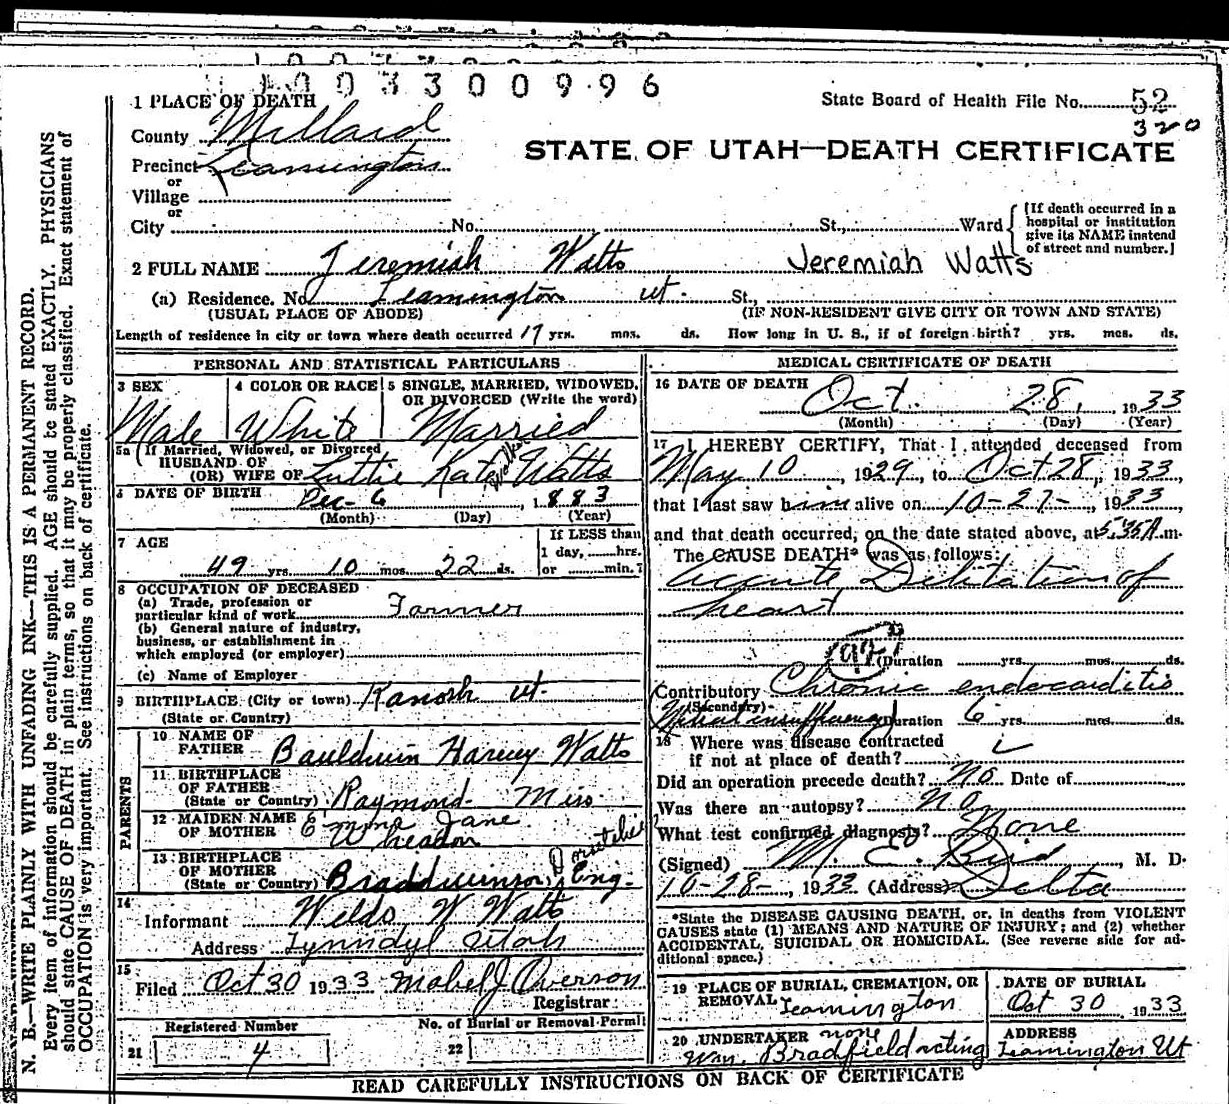 1003300996
State Board of Health File No. 52
320
1 PLACE OF DEATH
County Millard
STATE OF UTAH—DEATH CERTIFICATE
Precinct Leamington
or
Village
or
City No. St., Ward
[If death occurred in a
hospital or institution
give its NAME instead
of street and number.]
2 FULL NAME Jeremiah Watts Jeremiah Watts
(a) Residence. No. Leamington Ut. St.,
(USUAL PLACE OF ABODE) (IF NON-RESIDENT GIVE CITY OR TOWN AND STATE)
Length of residence in city or town where death occurred 17 yrs. mos. ds. How long in U. S., if of foreign birth? yrs. mos. ds.
PERSONAL AND STATISTICAL PARTICULARS
3 SEX 4 COLOR OR RACE 5 SINGLE, MARRIED, WIDOWED,
OR DIVORCED (Write the word)
Male White Married
5a (If Married, Widowed, or Divorced
HUSBAND OF
(OR) WIFE OF Luttie Kate Watts
6 DATE OF BIRTH Dec- 6, 1883
(Month) (Day) (Year)
7 AGE If LESS than
1 day, hrs.
49 yrs. 10 mos. 22 ds. or min.?
8 OCCUPATION OF DECEASED
(a) Trade, profession or
particular kind of work Farmer
(b) General nature of industry,
business, or establishment in
which employed (or employer)
(c) Name of Employer
9 BIRTHPLACE (City or town) Kanosh Ut.
(State or Country)
PARENTS
10 NAME OF
FATHER Bauldwin Harvey Watts
11 BIRTHPLACE
OF FATHER
(State or Country) Raymond Miss
12 MAIDEN NAME
OF MOTHER Jane
Wheadon
13 BIRTHPLACE
OF MOTHER
(State or Country) Eng.
14
Informant Weldo W Watts
Address Lynndyl Utah
15
Filed Oct 30 1933 Mabel J Overson
Registrar
Registered Number No. of Burial or Removal Permit
21 4 22
MEDICAL CERTIFICATE OF DEATH
16 DATE OF DEATH Oct. 28, 1933
(Month) (Day) (Year)
17 I HEREBY CERTIFY, That I attended deceased from
May 10, 1929, to Oct 28, 1933,
that I last saw him alive on 10-27-, 1933,
and that death occurred, on the date stated above, at 5:35 A. m.
The CAUSE DEATH* was as follows:
Accute Delitation of
heart
(Duration yrs. mos. ds.
Contributory Chronic endocarditis
(Secondary)
Mitral insufficiency Duration 6 yrs. mos. ds.
18 Where was disease contracted
if not at place of death?
Did an operation precede death? No Date of
Was there an autopsy? No
What test confirmed diagnosis? None
(Signed) M. E. Bird, M. D.
10-28-, 1933 (Address) Delta
*State the DISEASE CAUSING DEATH, or, in deaths from VIOLENT
CAUSES state (1) MEANS AND NATURE OF INJURY; and (2) whether
ACCIDENTAL, SUICIDAL OR HOMICIDAL. (See reverse side for ad-
ditional space.)
19 PLACE OF BURIAL, CREMATION, OR
REMOVAL Leamington
DATE OF BURIAL
Oct 30 1933
20 UNDERTAKER none
Wm. Bradfield acting
ADDRESS
Leamington Ut
READ CAREFULLY INSTRUCTIONS ON BACK OF CERTIFICATE
N. B.—WRITE PLAINLY WITH UNFADING INK—THIS IS A PERMANENT RECORD.
Every item of information should be carefully supplied. AGE should be stated EXACTLY. PHYSICIANS
should state CAUSE OF DEATH in plain terms, so that it may be properly classified. Exact statement of
OCCUPATION is very important. See instructions on back of certificate.